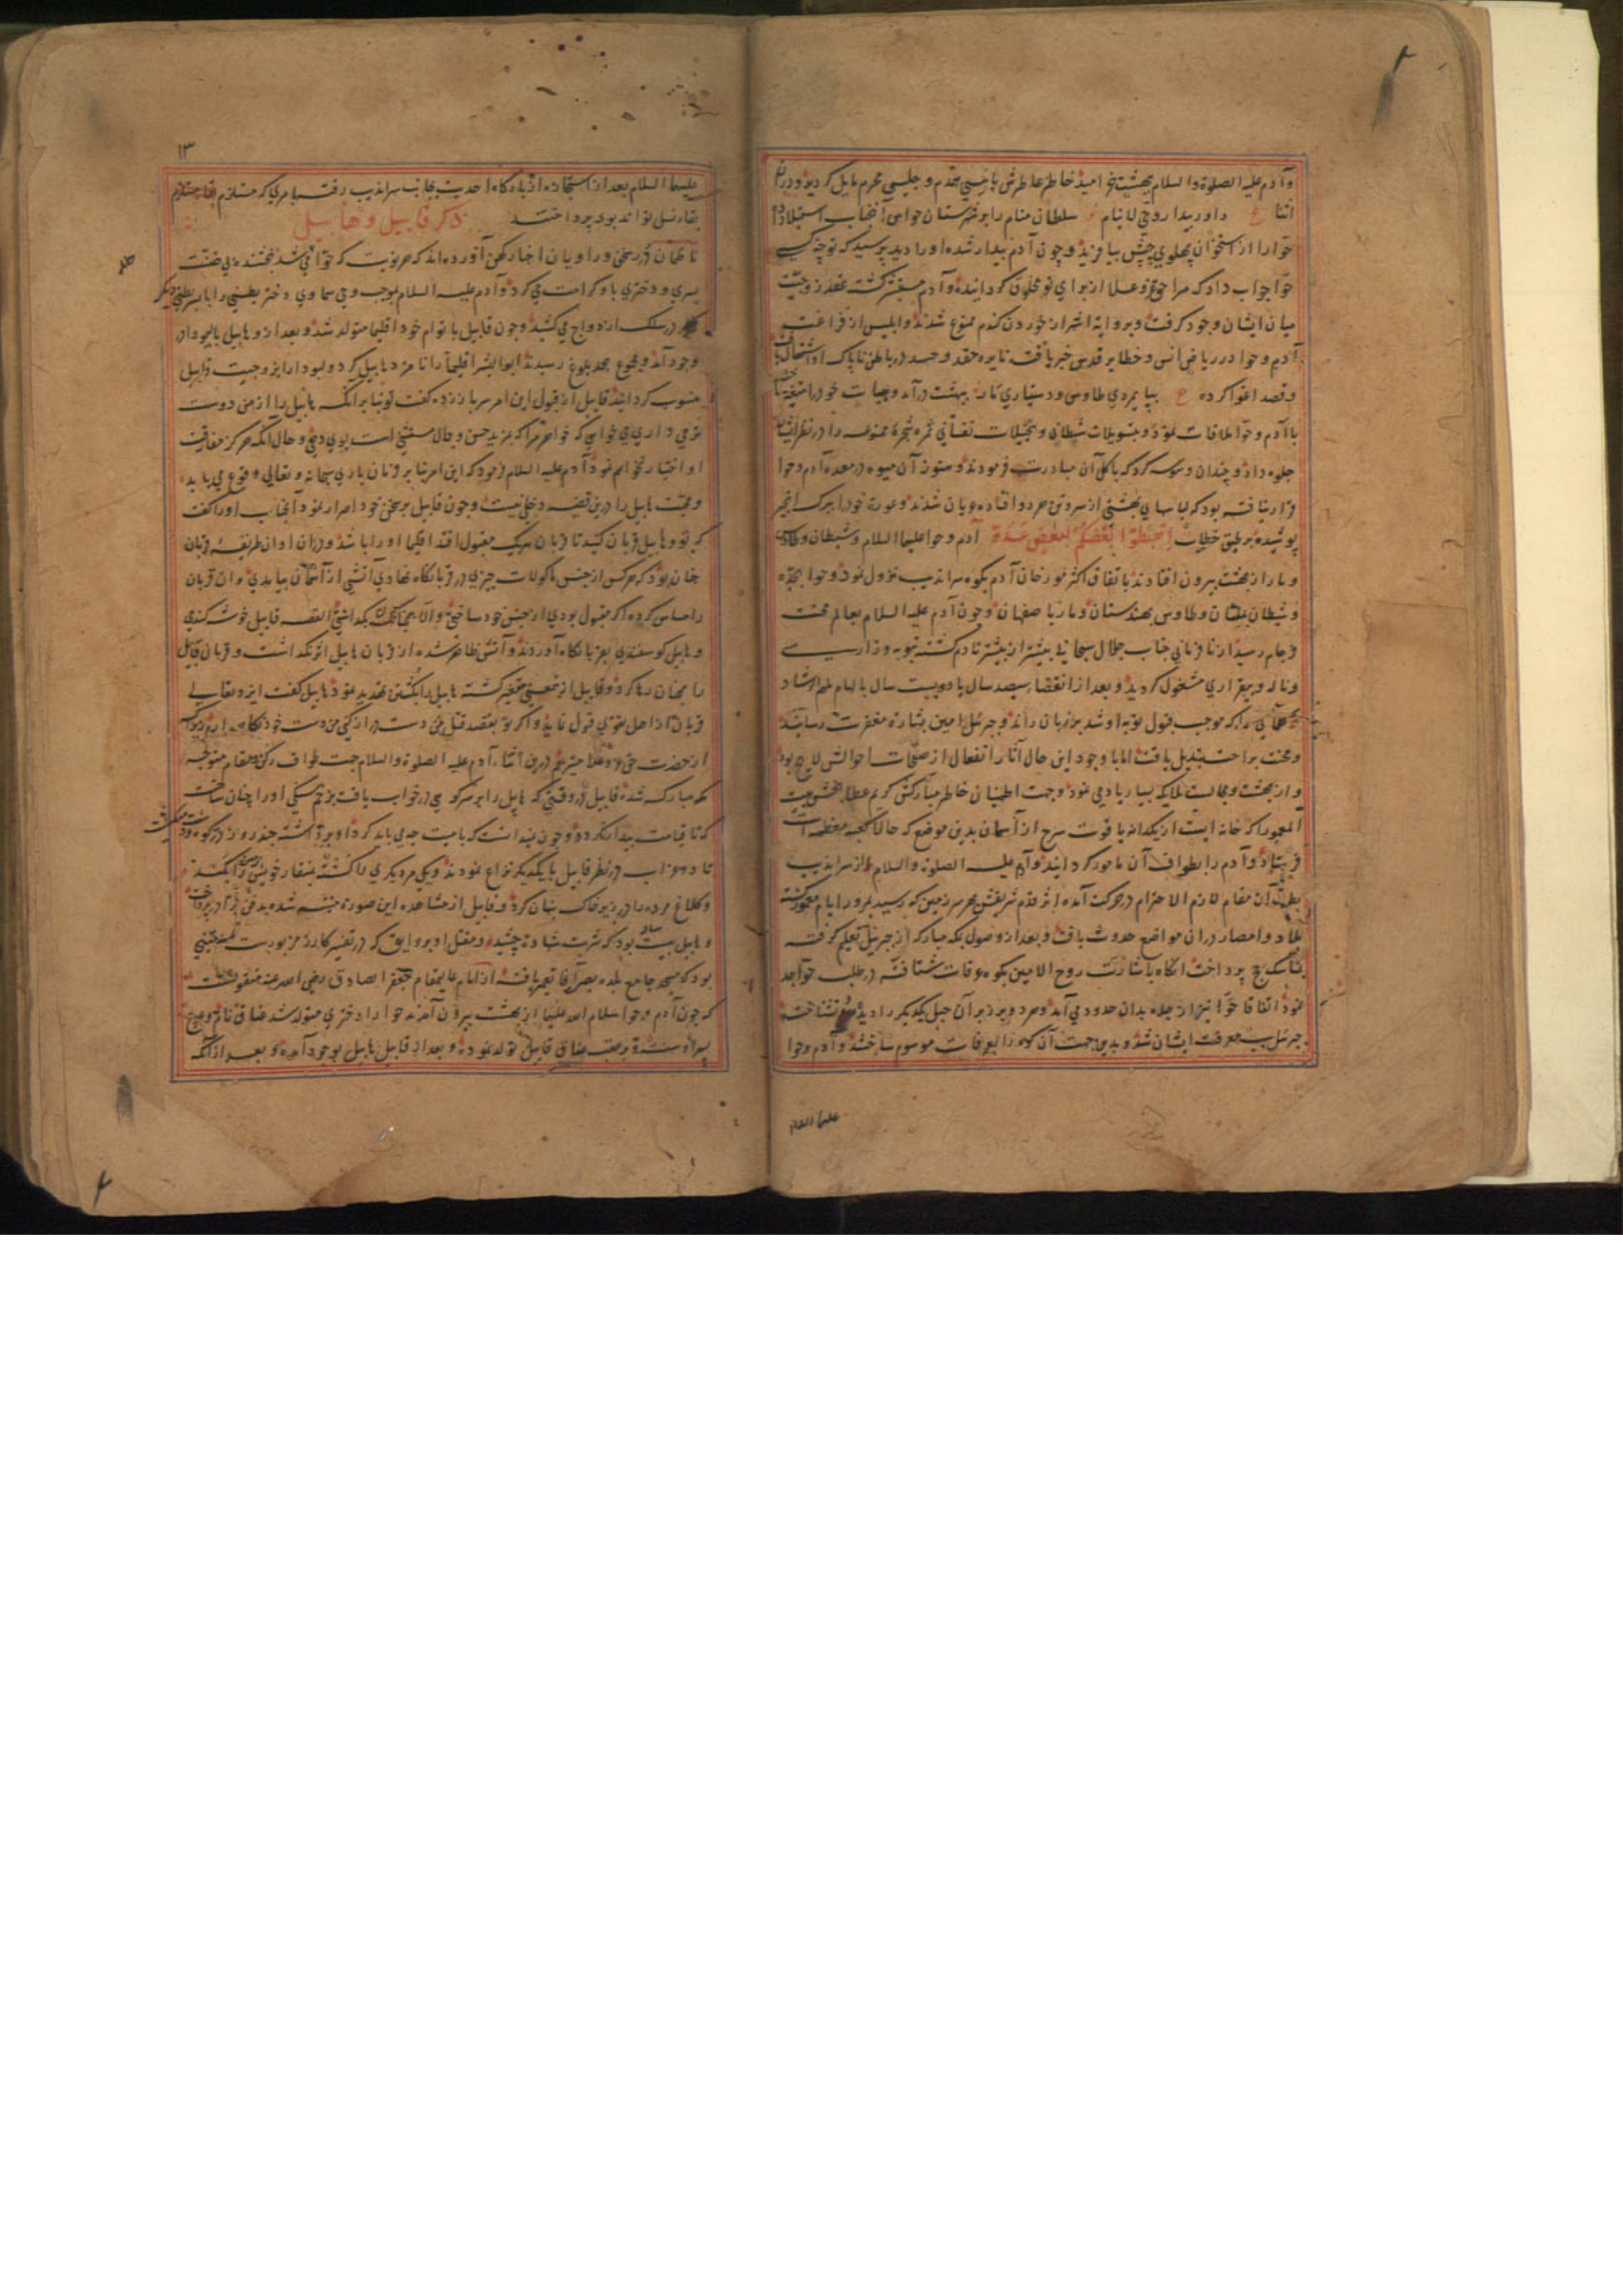 وآدم علیه الصلوة والسلام ببهشت خرامید خاطر عاطرش بانیسی همدم و جلیسی محرم مایل گردید و درین
اثنا ع داور بیدار روحی لا ینام سلطان منام را بر شهرستان حواس آنجناب استیلا داد
حوا را از استخوان پهلوی چپش بیافرید و چون آدم بیدار شده او را دید پرسید که تو چه کسی
حوا جواب داد که مرا حق عز و علا از برای تو مخلوق گردانیده و آدم مستبشر گشته عقد زوجیت
میان ایشان وجود گرفت و بروایة اشهر از خوردن گندم ممنوع شدند و ابلیس از فراغت
آدم وحوا در ریاض انس و خطایر قدس خبر یافت نایره حقد و حسد در باطن ناپاک او اشتعال یافت
و قصد اغوا کرده ع بپایمردی طاوس و دستیاری مار ببهشت درآمد و بهیات خود را متغیر
باآدم و حوا ملاقات نمود و بتسویلات شیطانی و تخیلات نفسانی ثمره شجرهٔ ممنوعه را در نظر ایشان
جلوه داد و چندان وسوسه کرد که باکل آن مبادرت فرمودند و هنوز آن میوه در معده آدم وحوا
قرار نیافته بود که لباسهای بهشتی از سر و تن هر دو افتاده عریان شدند و عورة خود را ببرک انجیر
پوشیده بر طبق خطاب اهبطوا بعضکم لبعض عدو آدم و حوا علیهما السلام و شیطان و طاوس
و مار از بهشت بیرون افتادند باتفاق اکثر مورخان آدم بکوه سراندیب نزول نمود و حوا بجده
و شیطان بملتان و طاوس بهندستان و مار باصفهان و چون آدم علیه السلام بعالم محنت
فرجام رسید از نافرمانی جناب جلال سبحانی بیشتر از بیشتر نادم گشته بتوبه و زاری
و ناله و بیقراری مشغول گردید و بعد از انقضاء سیصد سال یا دویست سال بالهام ملهم ارشاد
کلماتی را که موجب قبول توبه او شد بر زبان راند و جبرئیل امین بشارة مغفرت رسانید
و محنت براحت تبدیل یافت اما با وجود این حال آثار انفعال از صفحات احوالش لایح بود
و از بهشت و مجالست ملایکه بسیار یاد می نمود و جهت اطمینان خاطر مبارکش کریم عطابخش بیت
المعمور را که خانه ایست از یکدانه یاقوت سرخ از آسمان بدین موضع که حالا کعبه معظمه است
فرستاد و آدم را بطواف آن مامور گردانید و آدم علیه الصلوة والسلام از سراندیب
بطرف آن مقام لازم الاحترام در حرکت آمده اثر قدم شریفش بهر سرزمین که رسید بمرور ایام معمور گشته
بلاد و امصار در ان مواضع حدوث یافت و بعد از وصول بمکه مبارکه از جبرئیل تعلیم گرفته
بمناسک حج پرداخت آنگاه باشارت روح الامین بکوه عرفات شتافته در طلب حوا جد
نمود اتفاقا حوا نیز از جده بدان حدود می آمد و هر دو بر زبر آن جبل یکدیگر را دیده بشناختند
جبرئیل سبب معرفت ایشان شد و بدین جهت آن کوه را بعرفات موسوم ساختند و آدم و حوا
علیهما السلام
١٣
علیهما السلام بعد از استجازه از بارگاه احدیت بجانب سراندیب رفته بامری که مستلزم
بقاء نسل تواند بود پرداختند ذکر قابیل و هابیل
ناظمان درر سخن و راویان اخبار کهن آورده اند که هر نوبت که حوا حامله شد بخشنده بی ضنت
پسری و دختری باو کرامت می کرد و آدم علیه السلام بموجب وحی سماوی دختر بطنی را با پسر بطنی دیگر
در سلک ازدواج می کشید و چون قابیل با توام خود اقلیما متولد شد و بعد از و هابیل با لیودا در
وجود آمد و مجموع بحد بلوغ رسیدند ابوالبشر اقلیما را نامزد هابیل کرد و لیودا را بزوجیت قابیل
منسوب گردانید قابیل از قبول این امر سر باز زده گفت تو بنا بر آنکه هابیل را از من دوست
تر می داری می خواهی که خواهر مرا که بمزید حسن و جمال مستثنی است بوی دهی و حال آنکه هرگز مفارقت
او اختیار نخواهم نمود آدم علیه السلام فرمود که این امر بنا بر فرمان باری سبحانه و تعالی وقوع می یابد
و محبت هابیل را درین قضیه دخلی نیست و چون قابیل بر سخن خود اصرار نمود آنجناب او را گفت
که تو و هابیل قربان کنید تا قربان هریک مقبول افتد اقلیما او را باشد و در ان اوان طریقه قربان
چنان بود که هر کس از جنس ماکولات چیزی در قربانگاه نهادی آتشی از آسمان بیامدی و ان قربان
را مساس کرده اگر مقبول بودی از جنس خود ساختی و الا بحال گذاشتی القصه قابیل خوشه گندمی
و هابیل گوسفندی بقربانگاه آوردند و آتش ظاهر شده از قربان هابیل اثر نگذاشت و قربان قابیل
را همچنان رها کرد و قابیل ازین معنی متغیر گشته هابیل را بکشتن تهدید نمود هابیل گفت ایزد تعالی
قربان از اهل تقوی قبول نماید و اگر تو بقصد قتل من دست دراز کنی من دست خود نگاه دارم و
از حضرت حق عز و علا میترسم درین اثناء آدم علیه الصلوة والسلام جهت طواف رکن و مقام متوجه
مکه مبارکه شد و قابیل در وقتی که هابیل را بر سر کوهی در خواب یافت بزخم سنگی او را چنان ساخت
که تا قیامت بیدار نگردد و چون ندانست که با میت چه می باید کرد او را برداشته چند روز در کوه و دشت
تا دو غراب در نظر قابیل با یکدیگر نزاع نمودند و یکی مر دیگری را کشته بمنقار خویش زمین را بکند
و کلاغ مرده را در زیر خاک پنهان کرد و قابیل از مشاهده این صورة متنبه شده بدفن برادر پرداخت
و هابیل بیست ساله بود که شربت شهادة چشید و مقتل او بروایتی که در تفسیر کازرونی مزبورست
بود که مسجد جامع بلده بصره آنجا تعمیر یافته از امام عالیمقام جعفر الصادق رضی الله عنه منقولست
که چون آدم و حوا سلام الله علیهما از بهشت بیرون آمدند حوا را دختری متولد شد عناق نام و هیچ
پسر او سنده و بعقب عناق قابیل تولد نموده و بعد از قابیل هابیل بوجود آمده و بعد از آنکه